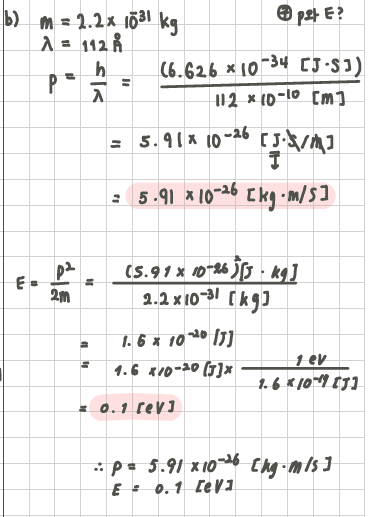 b) m = 2.2 x 10^-31 kg ⊕ p와 E?
λ = 112 Å
p = h/λ = (6.626 × 10^-34 [J·S]) / 112 × 10^-10 [m]
= 5.91 × 10^-26 [J·S/m]
= 5.91 × 10^-26 [kg·m/S]
E = p²/2m = (5.91 × 10^-26)²[J·kg] / 2.2 × 10^-31 [kg]
= 1.6 × 10^-20 [J]
= 1.6 × 10^-20 [J] × 1 eV / 1.6 × 10^-19 [J]
= 0.1 [eV]
∴ p = 5.91 × 10^-26 [kg·m/s]
E = 0.1 [eV]